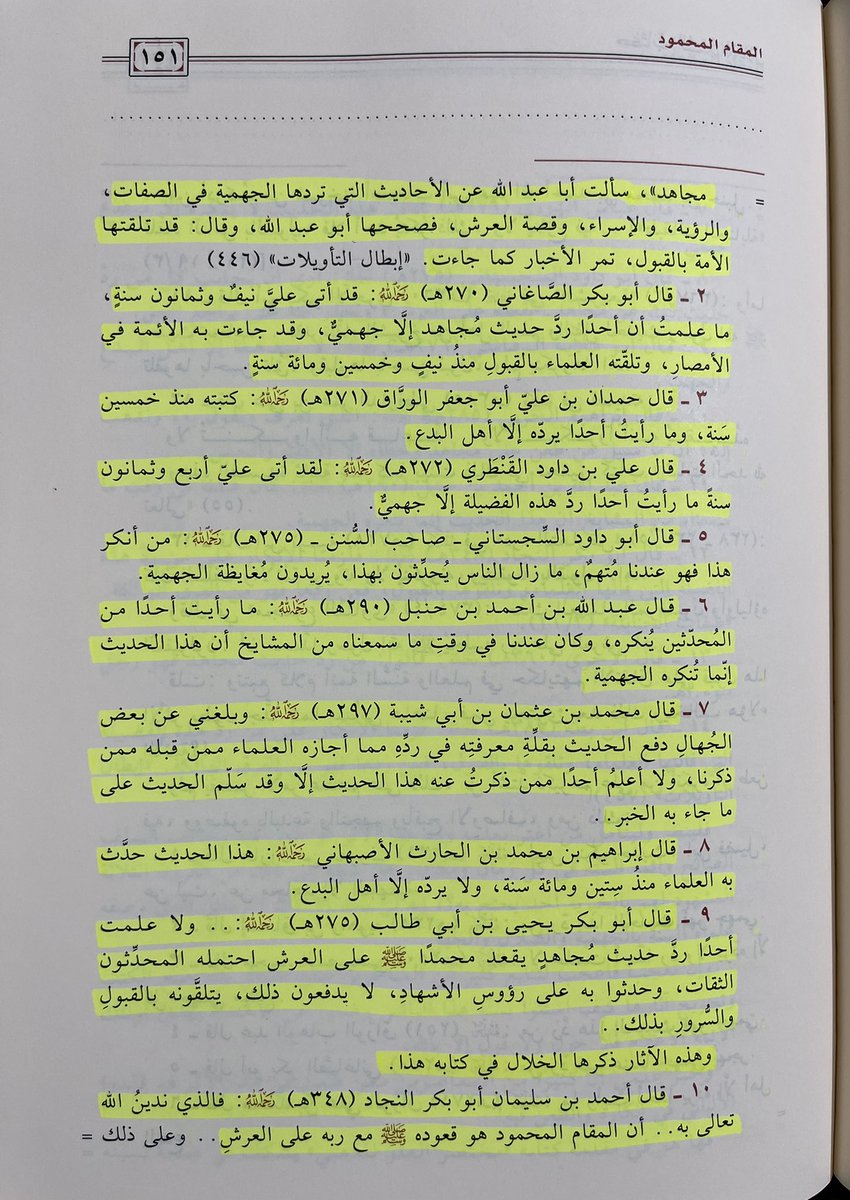 المقام المحمود
١٥١
................................................................
= مجاهد»، سألت أبا عبد الله عن الأحاديث التي تردها الجهمية في الصفات،
والرؤية، والإسراء، وقصة العرش، فصححها أبو عبد الله، وقال: قد تلقتها
الأمة بالقبول، تمر الأخبار كما جاءت. «إبطال التأويلات» (٤٤٦)
٢ ـ قال أبو بكر الصَّاغاني (٢٧٠هـ) رَحِمَهُ اللهُ: قد أتى عليَّ نيفٌ وثمانون سنةٍ،
ما علمتُ أن أحدًا ردَّ حديث مُجاهد إلَّا جهميٌّ، وقد جاءت به الأئمة في
الأمصارِ، وتلقّته العلماء بالقبولِ منذُ نيفٍ وخمسين ومائة سنةٍ.
٣ ـ قال حمدان بن عليّ أبو جعفر الورَّاق (٢٧١هـ) رَحِمَهُ اللهُ: كتبته منذ خمسين
سَنة، وما رأيتُ أحدًا يردّه إلَّا أهل البدع.
٤ ـ قال علي بن داود القَنْطَري (٢٧٢هـ) رَحِمَهُ اللهُ: لقد أتى عليّ أربع وثمانون
سنةً ما رأيتُ أحدًا ردَّ هذه الفضيلة إلَّا جهميٌّ.
٥ ـ قال أبو داود السِّجستاني ـ صاحب السُّنن ـ (٢٧٥هـ) رَحِمَهُ اللهُ: من أنكر
هذا فهو عندنا مُتهمٌ، ما زال الناس يُحدِّثون بهذا، يُريدون مُغايظة الجهمية.
٦ ـ قال عبد الله بن أحمد بن حنبل (٢٩٠هـ) رَحِمَهُ اللهُ: ما رأيت أحدًا من
المُحدّثين يُنكره، وكان عندنا في وقتِ ما سمعناه من المشايخ أن هذا الحديث
إنّما تُنكره الجهمية.
٧ ـ قال محمد بن عثمان بن أبي شيبة (٢٩٧هـ) رَحِمَهُ اللهُ: وبلغني عن بعض
الجُهالِ دفع الحديث بقلَّةِ معرفته في ردِّهِ مما أجازه العلماء ممن قبله ممن
ذكرنا، ولا أعلمُ أحدًا ممن ذكرتُ عنه هذا الحديث إلَّا وقد سَلّم الحديث على
ما جاء به الخبر..
٨ ـ قال إبراهيم بن محمد بن الحارث الأصبهاني رَحِمَهُ اللهُ: هذا الحديث حدَّث
به العلماء منذُ سِتين ومائة سَنة، ولا يردّه إلَّا أهل البدع.
٩ ـ قال أبو بكر يحيى بن أبي طالب (٢٧٥هـ) رَحِمَهُ اللهُ:.. ولا علمت
أحدًا ردَّ حديث مُجاهدٍ يقعد محمدًا ﷺ على العرش احتمله المحدِّثون
الثقات، وحدثوا به على رؤوسِ الأشهادِ، لا يدفعون ذلك، يتلقَّونه بالقبولِ
والسُّرورِ بذلك..
وهذه الآثار ذكرها الخلال في كتابه هذا.
١٠ ـ قال أحمد بن سليمان أبو بكر النجاد (٣٤٨هـ) رَحِمَهُ اللهُ: فالذي ندينُ الله
تعالى به.. أن المقام المحمود هو قعوده ﷺ مع ربه على العرشِ.. وعلى ذلك =